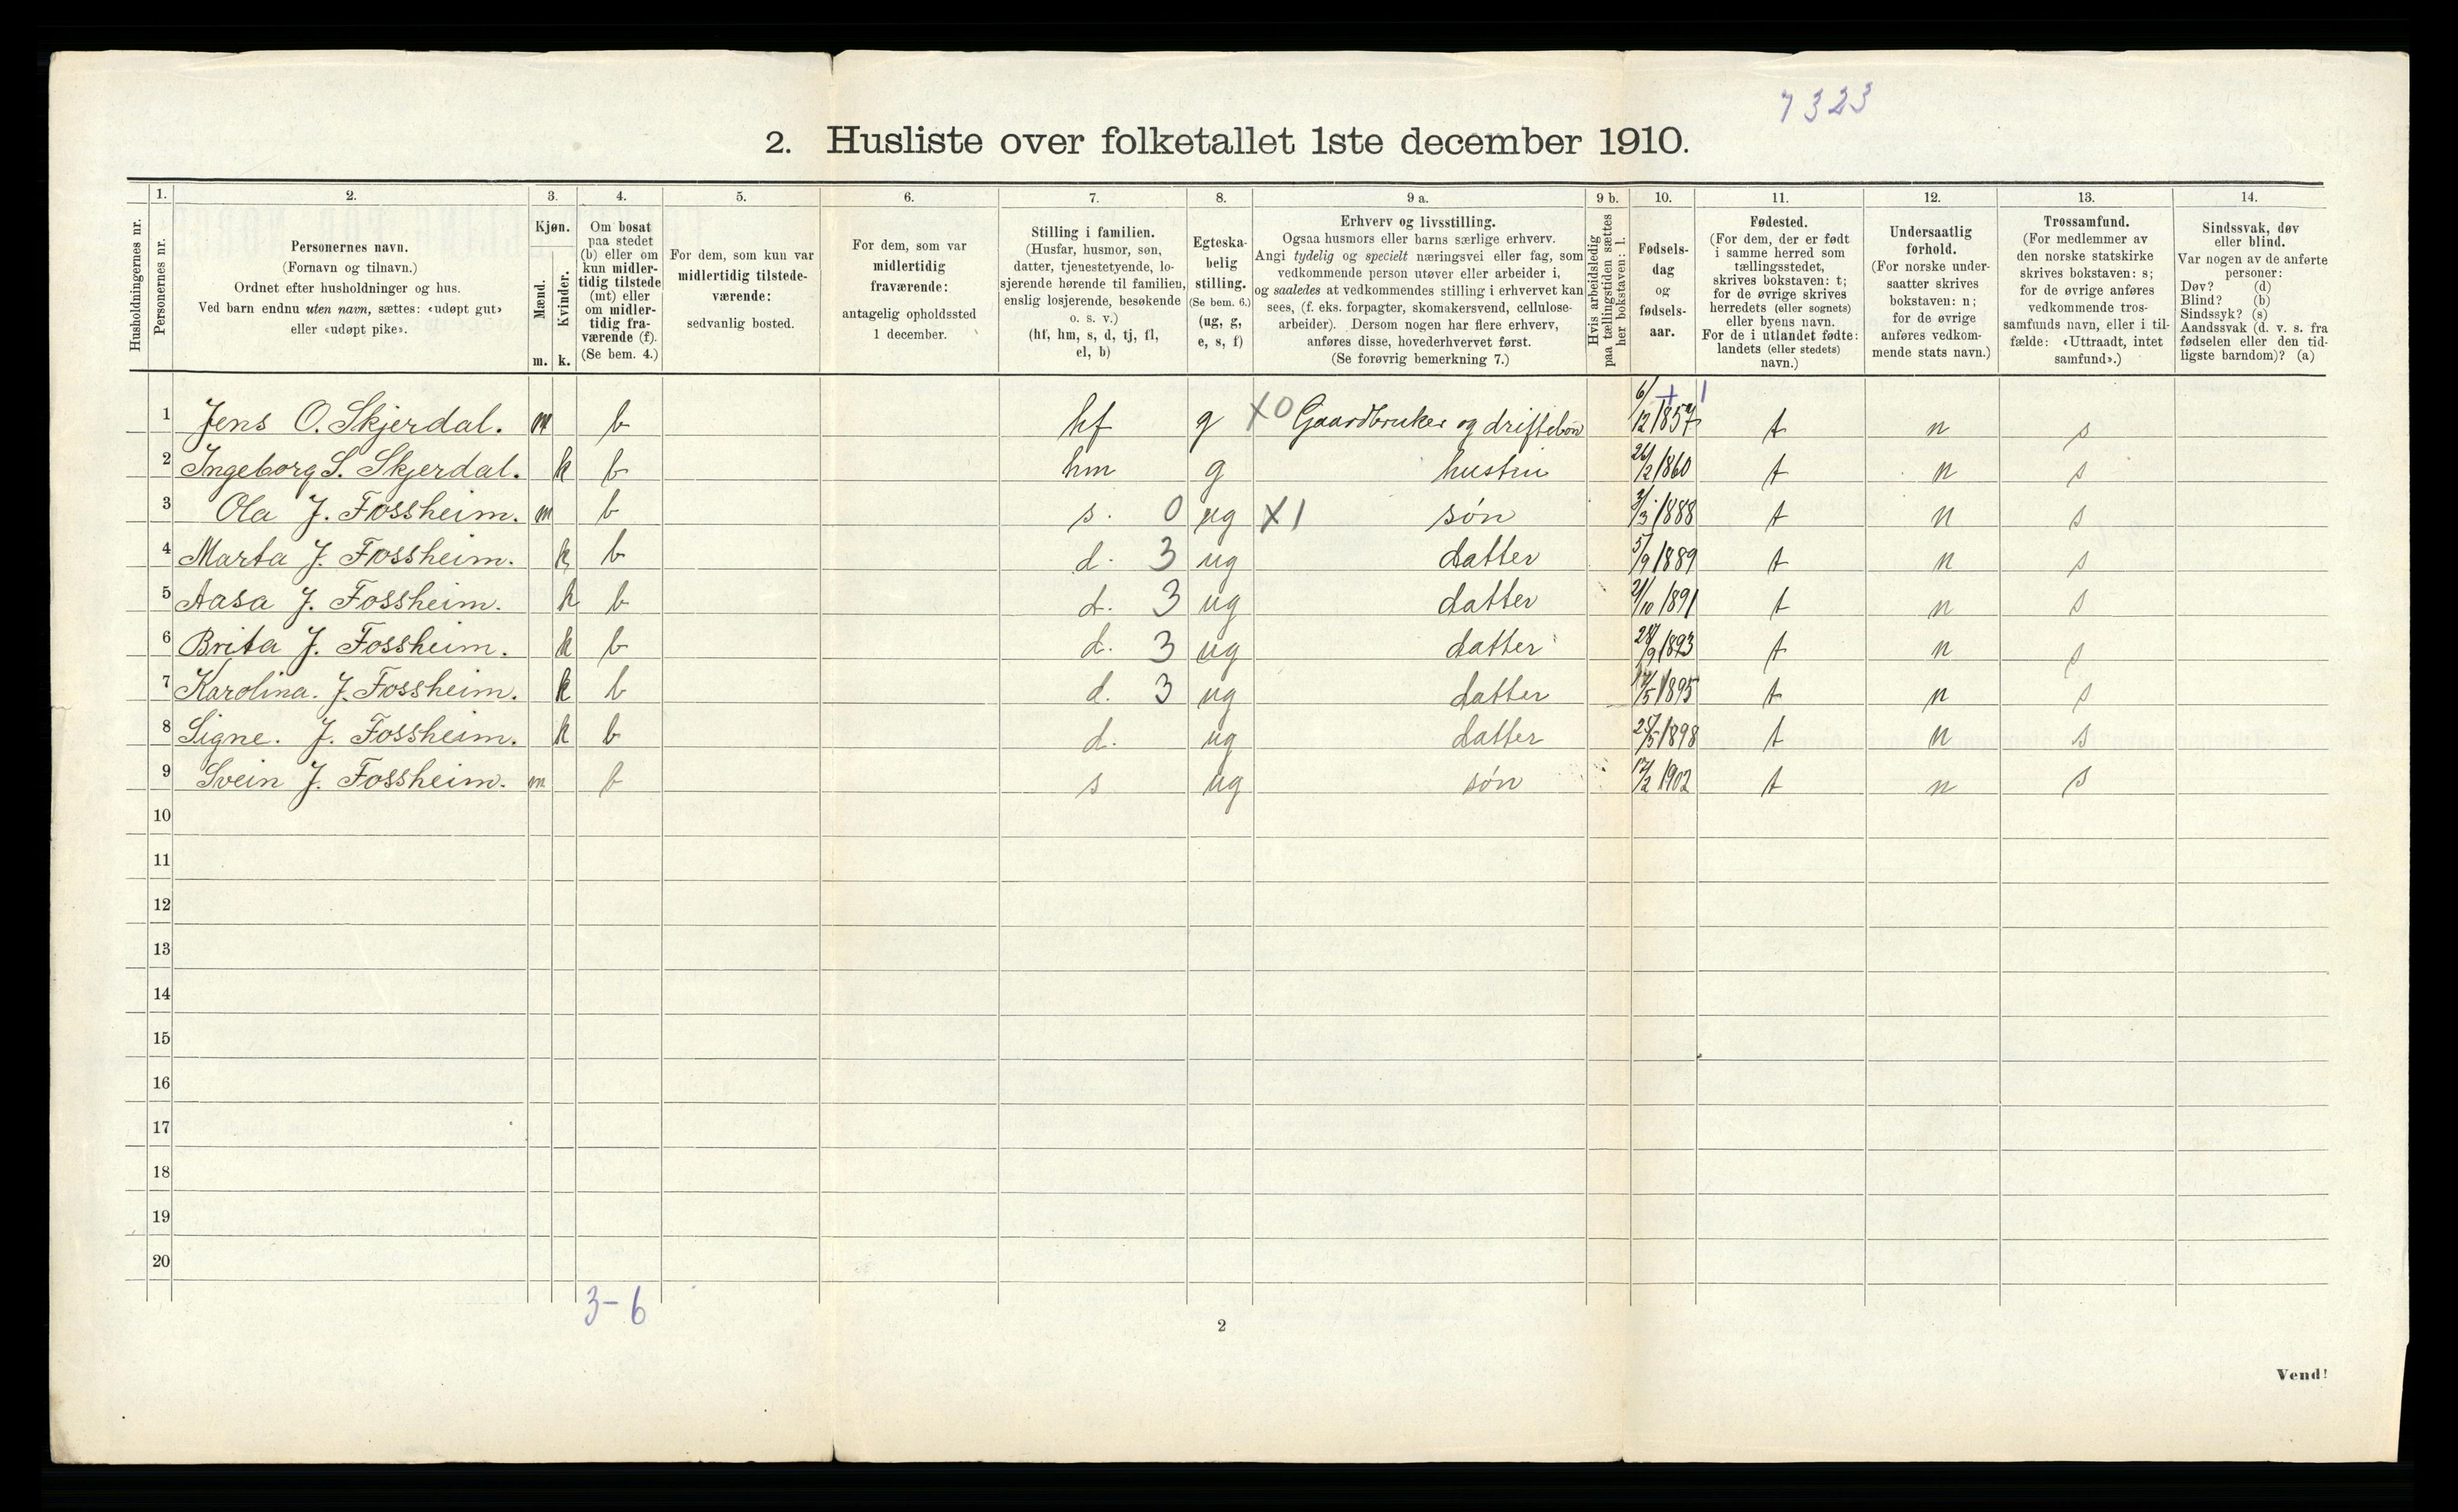 7323
2. Husliste over folketallet 1ste december 1910.
Husholdningernes nr.
1.
Personernes nr.
2.
Personernes navn.
(Fornavn og tilnavn.)
Ordnet efter husholdninger og hus.
Ved barn endnu uten navn, sættes: «udøpt gut»
eller «udøpt pike».
3.
Kjøn.
Mænd.
Kvinder.
m. k.
4.
Om bosat
paa stedet
(b) eller om
kun midler-
tidig tilstede
(mt) eller
om midler-
tidig fra-
værende (f).
(Se bem. 4.)
5.
For dem, som kun var
midlertidig tilstede-
værende:
sedvanlig bosted.
6.
For dem, som var
midlertidig
fraværende:
antagelig opholdssted
1 december.
7.
Stilling i familien.
(Husfar, husmor, søn,
datter, tjenestetyende, lo-
sjerende hørende til familien,
enslig losjerende, besøkende
o. s. v.)
(hf, hm, s, d, tj, fl,
el, b)
8.
Egteska-
belig
stilling.
(Se bem. 6.)
(ug, g,
e, s, f)
9 a.
Erhverv og livsstilling.
Ogsaa husmors eller barns særlige erhverv.
Angi tydelig og specielt næringsvei eller fag, som
vedkommende person utøver eller arbeider i,
og saaledes at vedkommendes stilling i erhvervet kan
sees, (f. eks. forpagter, skomakersvend, cellulose-
arbeider). Dersom nogen har flere erhverv,
anføres disse, hovederhvervet først.
(Se forøvrig bemerkning 7.)
9 b.
Hvis arbeidsledig
paa tællingstiden sættes
her bokstaven: l.
10.
Fødsels-
dag
og
fødsels-
aar.
11.
Fødested.
(For dem, der er født
i samme herred som
tællingsstedet,
skrives bokstaven: t;
for de øvrige skrives
herredets (eller sognets)
eller byens navn.
For de i utlandet fødte:
landets (eller stedets)
navn.)
12.
Undersaatlig
forhold.
(For norske under-
saatter skrives
bokstaven: n;
for de øvrige
anføres vedkom-
mende stats navn.)
13.
Trossamfund.
(For medlemmer av
den norske statskirke
skrives bokstaven: s;
for de øvrige anføres
vedkommende tros-
samfunds navn, eller i til-
fælde: «Uttraadt, intet
samfund».)
14.
Sindssvak, døv
eller blind.
Var nogen av de anførte
personer:
Døv? (d)
Blind? (b)
Sindssyk? (s)
Aandssvak (d. v. s. fra
fødselen eller den tid-
ligste barndom)? (a)
1 Jens O. Skjerdal. m b hf g X0 Gaardbruker og driftebon 6/12 1857 t n s
2 Ingeborg S. Skjerdal. k b hm g hustru 26/2 1860 t n s
3 Ola J. Fossheim. m b s. 0 ug X1 søn 3/3 1888 t n s
4 Marta J. Fossheim. k b d. 3 ug datter 5/9 1889 t n s
5 Aasa J. Fossheim. k b d. 3 ug datter 21/10 1891 t n s
6 Brita J. Fossheim. k b d. 3 ug datter 1893 t n s
7 Karolina. J. Fossheim. k b d. 3 ug datter 17/5 1895 t n s
8 Signe. J. Fossheim. k b d. ug datter 1898 t n s
9 Svein J. Fossheim. m b s ug søn 17/2 1902 t n s
10
11
12
13
14
15
16
17
18
19
20
3-6
2
Vend!